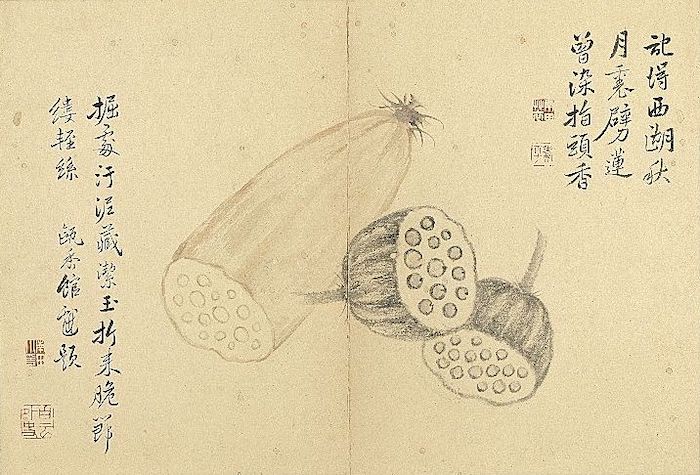 記得西湖秋
月裏劈蓮
曾染指頭香
掘處汙泥藏潔玉折來脆節
縷輕絲 甌香館戲題